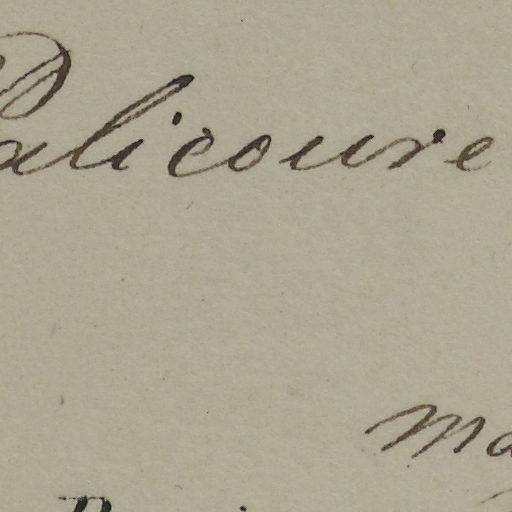 Palicoure
Ma